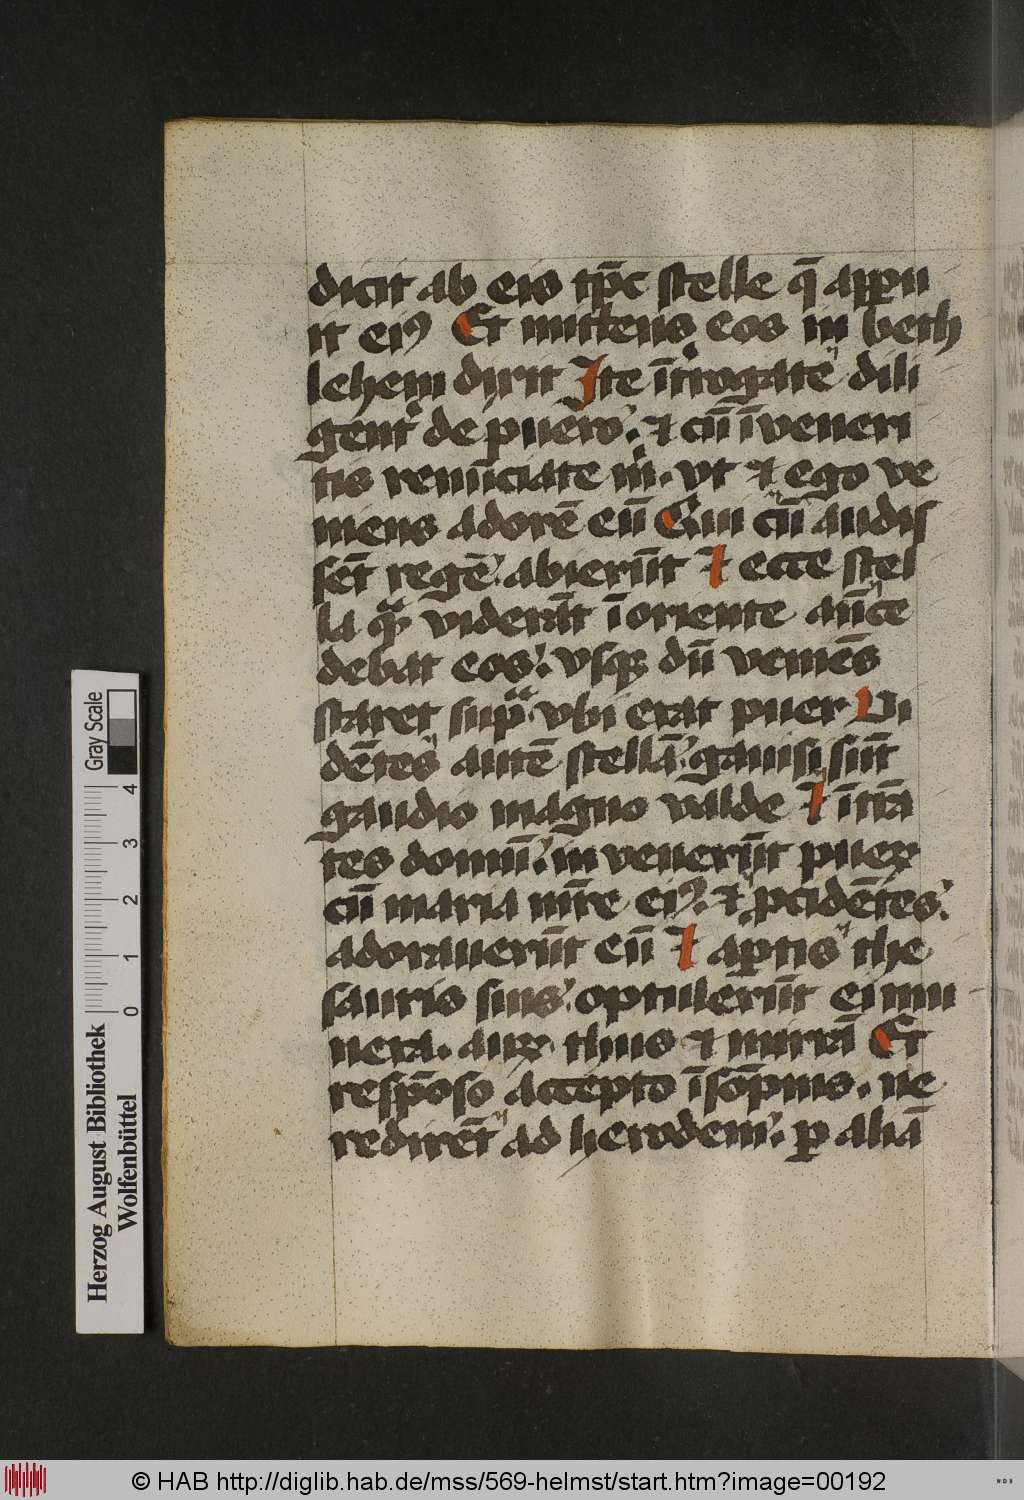 dicit ab eis tp̄c stelle q̄ apparu
it eiꝰ Et mittens eos in beth
lehem dixit Ite īt̓rogate dili
gent̓ de puero. ⁊ cū īveneri
tis renūciate m̄. vt ⁊ ego ve
niens adorē eū Qui cū audis
sēt regē abierūt ⁊ ecce stel
la qᵃ̄ viderāt ī oriente aūce
debat eos. vsqꝫ dū veniēs
staret supᵃ vbi erat puer Vi
dētes autē stellā gauisi sūt
gaudio magno valde ⁊ ītrā
tes domū. in venerūt pueꝝ
cū maria mr̄e eiꝰ. ⁊ ꝓcidētes.
adorauerūt eū ⁊ apertis the
sauris suis. optulerūt ei mu
nera. auꝝ thus ⁊ mirrā Et
respōso accepto ī sōpnis. ne
redirēt ad herodem. ꝑ aliā
Herzog August Bibliothek
Wolfenbüttel
Gray Scale
0 1 2 3 4
© HAB http://diglib.hab.de/mss/569-helmst/start.htm?image=00192